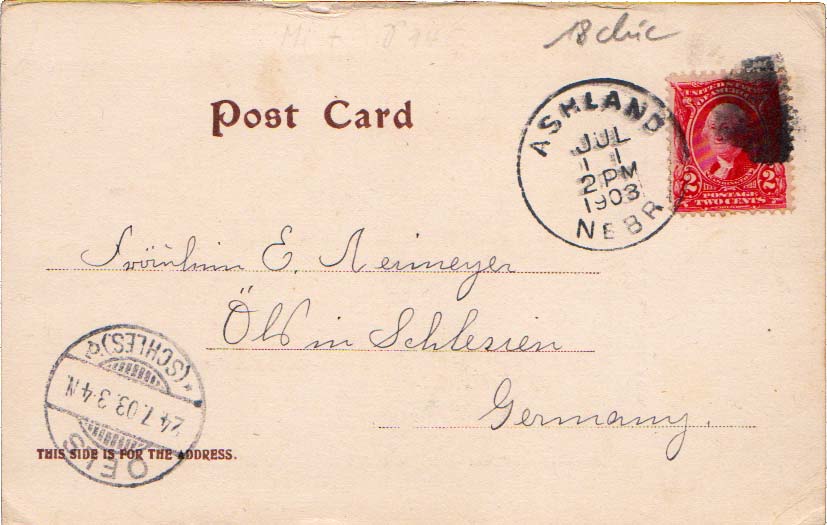 18 chic
Post Card
ASHLAND
JUL
11
2 PM
1903
NEBR
UNITED STATES
OF AMERICA
WASHINGTON
2 2
POSTAGE
TWO CENTS
Fräulein E. Neumeyer
Öls in Schlesien
Germany.
*(SCHLES)
24.7.03.3-4N.
OELS
THIS SIDE IS FOR THE ADDRESS.